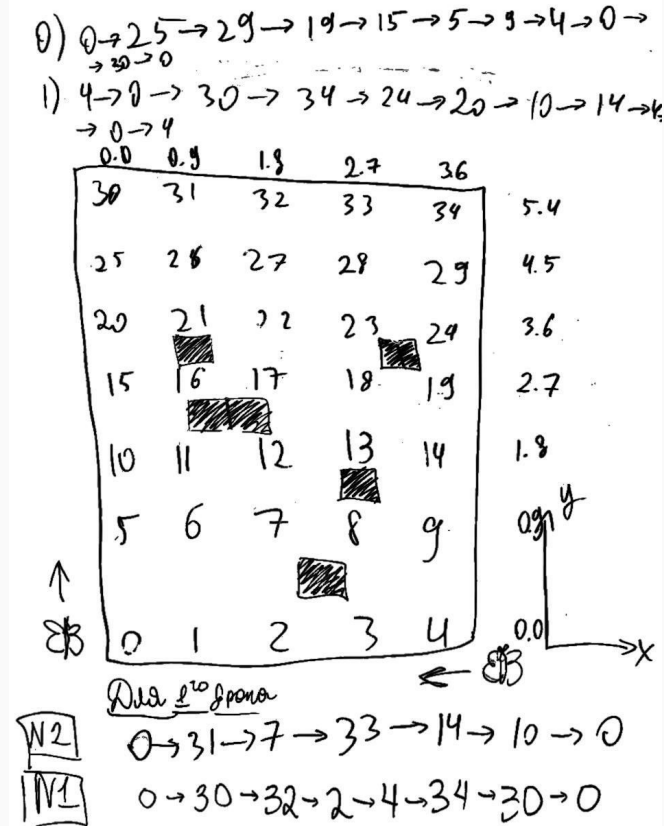 0) 0→25→29→19→15→5→9→4→0→
→30→0
1) 4→0→30→34→24→20→10→14→4
→0→4
0.0 0.9 1.8 2.7 36
30 31 32 33 34 5.4
25 26 27 28 29 4.5
20 21 22 23 24 3.6
15 16 17 18 19 2.7
10 11 12 13 14 1.8
5 6 7 8 9 0.9 y
0 1 2 3 4 0.0 x
Для 1го дрона
N2 0→31→7→33→14→10→0
N1 0→30→32→2→4→34→30→0